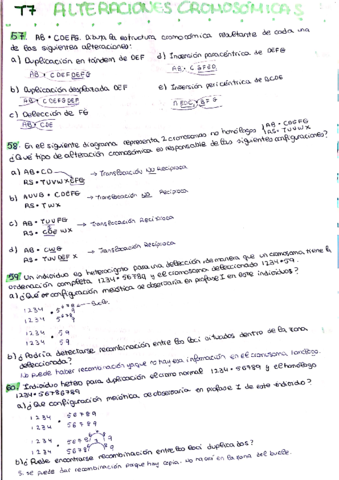 T7 ALTERACIONES CROMOSÓMICAS
57. AB • CDEFG. Dibuja la estructura cromosómica resultante de cada una
de las siguientes alteraciones:
a) Duplicación en tándem de DEF
AB • CDEFDEFG
d) Inversión paracéntrica de DEFG
AB • CGFED
b) Duplicación desplazada DEF
AB • CDEFGDEF
e) Inversión pericéntrica de BCDE
c) Deleción de FG
AB • CDE
58. En el siguiente diagrama representa 2 cromosomas no homólogos AB • CDEFG
RS • TUVWX
¿Qué tipo de alteración cromosómica es responsable de las siguientes configuraciones?
a) AB • CD → Translocación NO Recíproca
RS • TUVWXEFG
b) AUVB • CDEFG → Translocación NO Recíproca
RS • TWX
c) AB • TUVFG → Translocación Recíproca
RS • CDEWX
d) AB • CWG → Translocación Recíproca
RS • TUVDEFX
59. Un individuo es heterocigoto para una deleción, de manera que un cromosoma tiene la
ordenación completa 1234 • 56789 y el cromosoma deleccionado 1234 • 59.
a) ¿Qué configuración meiótica se observaría en profase I en este individuo?
1234 • 5
1234 • 5
1234 • 59
1234 • 59
b) ¿Podría detectarse recombinación entre los loci situados dentro de la zona
deleccionada?
No puede haber recombinación ya que no hay esa información en el cromosoma homólogo.
60. Individuo hetero para duplicación el cromo normal 1234 • 56789 y el homólogo
1234 • 56786789
a) ¿Qué configuración meiótica se observaría en profase I de este individuo?
1234 • 56789
1234 • 56789
1234 • 5678
1234 • 5678
b) ¿Puede encontrarse recombinación entre los loci duplicados?
Si se puede dar recombinación porque hay copia. No así en la zona del bucle.